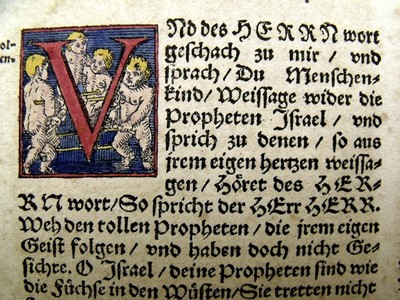 VNd des HERRN wort
geschach zu mir / vnd
sprach / Du Menschen-
kind / Weissage wider die
Propheten Jsrael / vnd
sprich zu denen / so aus
jrem eigen hertzen weissa-
gen / Höret des HER-
RN wort / So spricht der HErr HERR.
Weh den tollen Propheten / die jrem eigen
Geist folgen / vnd haben doch nicht Ge-
sichte. O Jsrael / deine Propheten sind wie
die Füchse in den Wüsten / Sie tretten nicht